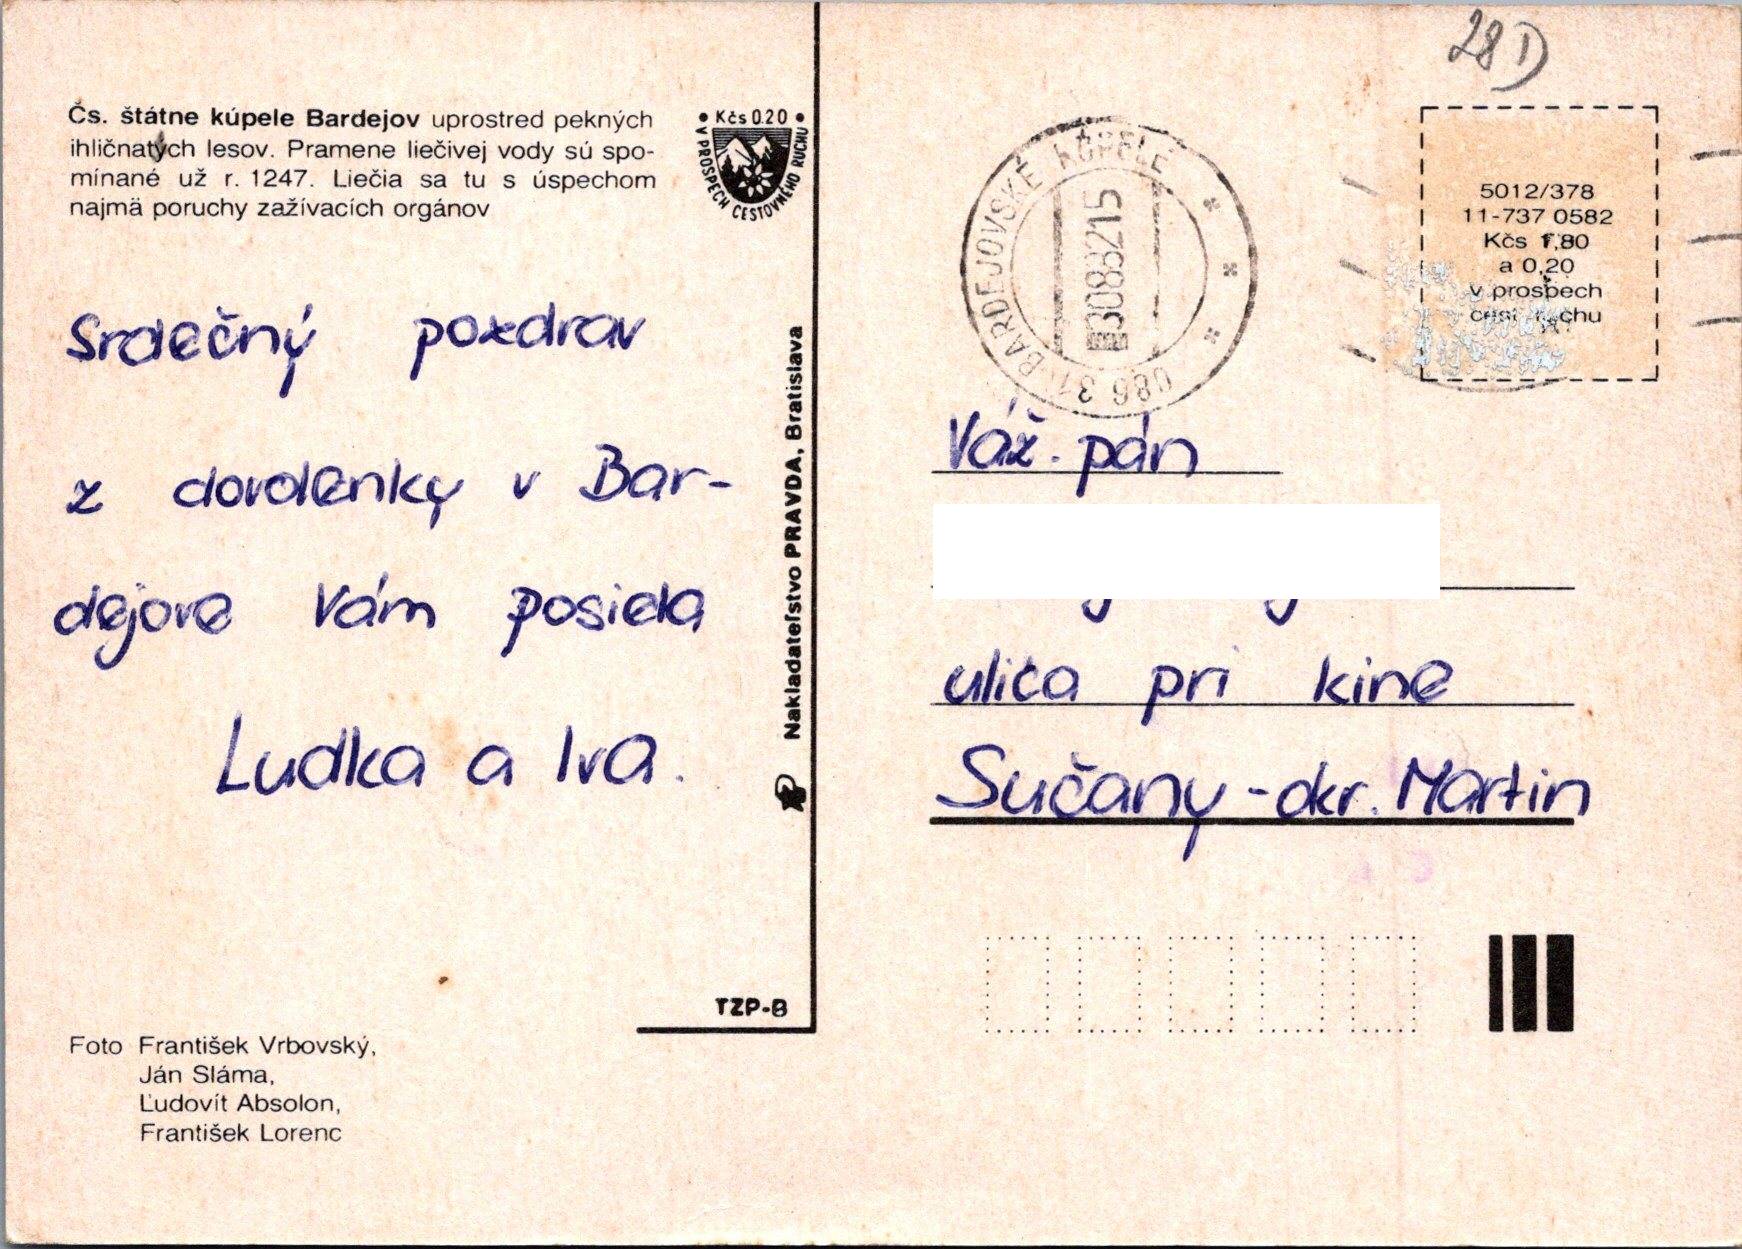 Čs. štátne kúpele Bardejov uprostred pekných
ihličnatých lesov. Pramene liečivej vody sú spo-
mínané už r. 1247. Liečia sa tu s úspechom
najmä poruchy zažívacích orgánov
• Kčs 0.20 •
V PROSPECH CESTOVNÉHO RUCHU
Srdečný pozdrav
z dovolenky v Bar-
dejove Vám posiela
Ludka a Iva.
Nakladateľstvo PRAVDA, Bratislava
TZP-B
Foto František Vrbovský,
Ján Sláma,
Ľudovít Absolon,
František Lorenc
28
086 31 BARDEJOVSKÉ KÚPELE
30883215
5012/378
11-737 0582
Kčs 1,80
a 0,20
v prospech
cest. ruchu
Váž. pán
ulica pri kine
Sučany - okr. Martin